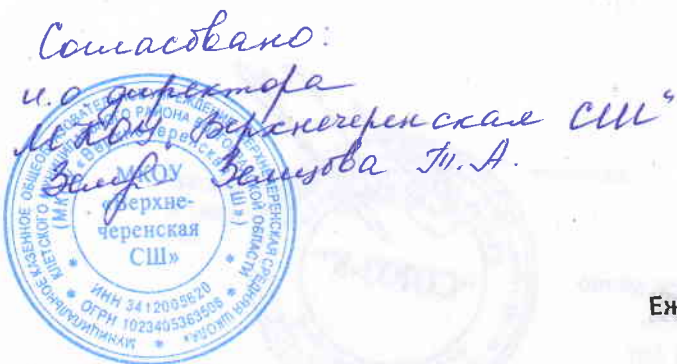 Согласовано:
и.о. директора
МКОУ "Верхнечеренская СШ"
Земцова Т.А.
МУНИЦИПАЛЬНОЕ КАЗЕННОЕ ОБЩЕОБРАЗОВАТЕЛЬНОЕ УЧРЕЖДЕНИЕ «ВЕРХНЕЧЕРЕНСКАЯ СРЕДНЯЯ ШКОЛА»
КЛЕТСКОГО МУНИЦИПАЛЬНОГО РАЙОНА ВОЛГОГРАДСКОЙ ОБЛАСТИ
(МКОУ «Верхнечеренская СШ»)
МКОУ
«Верхне-
черенская
СШ»
* ИНН 3412005620 *
ОГРН 1023405363508
Еж